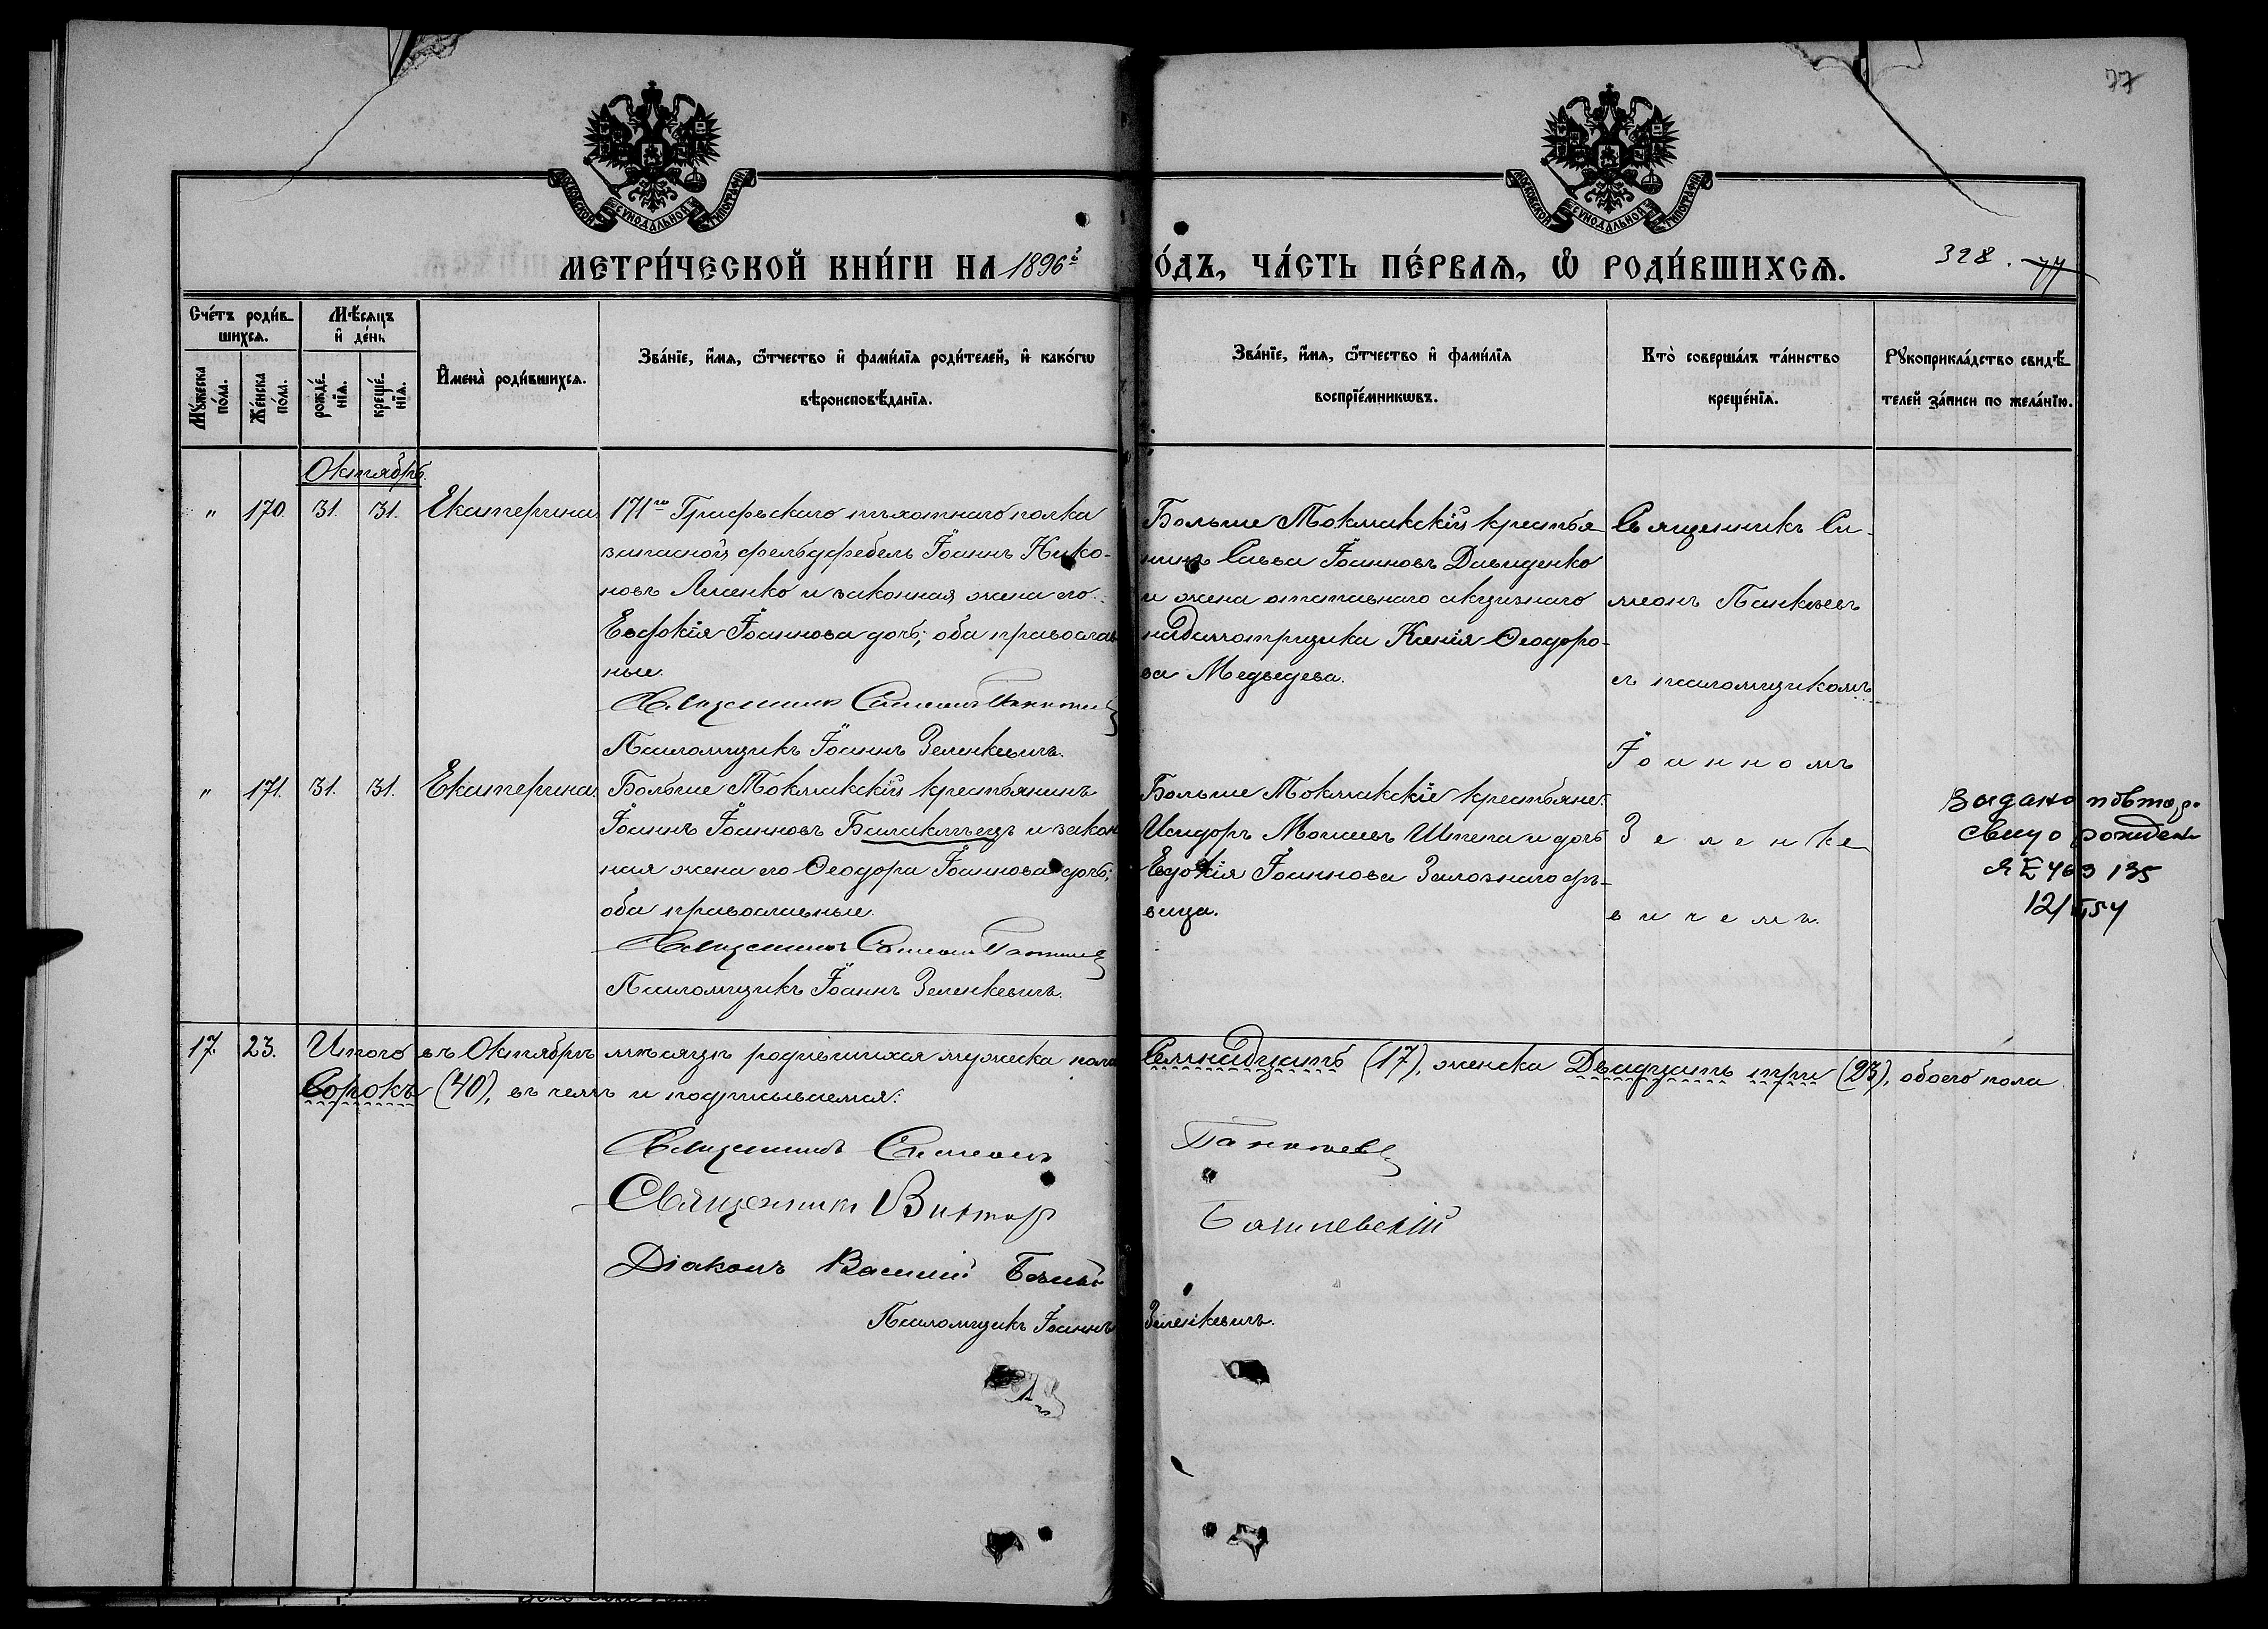 77
МОСКОВСКОЙ СѴНОДАЛЬНОЙ ТИПОГРАФІИ
МОСКОВСКОЙ СѴНОДАЛЬНОЙ ТИПОГРАФІИ
МЕТРИ́ЧЕСКОЙ КНИ́ГИ НА 1896й
О́ДЪ, ЧА́СТЬ ПЕ́РВАѦ, Ѡ҆ РОДИ́ВШИХСѦ.
328. 77
Сче́тъ роди́в-
шихсѧ.
Мꙋ́жеска по́ла.
Же́нска по́ла.
Мѣ́сѧцъ
и҆ де́нь
рожде́-
нїѧ.
креще́-
нїѧ.
И҆мена̀ роди́вшихсѧ.
Зва́нїе, и҆́мѧ, ѻ҆́тчество и҆ фами́лїѧ роди́телей, и҆ како́гѡ
вѣроисповѣ́данїѧ.
Зва́нїе, и҆́мѧ, ѻ҆́тчество и҆ фами́лїѧ
воспрїе́мникѡвъ.
Кто̀ соверша́лъ та́инство
креще́нїѧ.
Рꙋкоприкла́дство свидѣ́-
телей за́писи по жела́нїю.
Октябрь.
" 170. 31. 31. Екатерина.
171го пѣхотнаго полка
запасной фельдфебель Іоаннъ Нико-
новъ Лисенко и законная жена его
Евфокія Іоаннова дочь; оба православ
ные.
Священникъ Симеонъ Панкѣевъ
Псаломщикъ Іоаннъ Зеленкевичъ.
Больше Токмакскій крестья-
нинъ Савва Іоанновъ Давиденко
и жена отставнаго акцизнаго
надсмотрщика Ксенія Ѳеодоро-
ва Медведева.
Священникъ Си-
меонъ Панкѣевъ
съ псаломщикомъ
Іоанномъ
Зеленке-
вичемъ.
" 171. 31. 31. Екатерина.
Больше Токмакскій крестьянинъ
Іоаннъ Іоанновъ Балаклѣецъ и закон
ная жена его Ѳеодора Іоаннова дочь;
оба православные.
Священникъ Симеонъ Панкѣевъ
Псаломщикъ Іоаннъ Зеленкевичъ.
Больше Токмакскіе крестьяне:
Исидоръ Моисеевъ Штепа и дочь
Евдокія Іоаннова Заложнаго дѣ-
вица.
Видано повтор.
Свид о рожден
ЯЕ 463 135
17. 23. Итого въ Октябрѣ мѣсяцѣ родившихся мужеска пола Семнадцать (17), женска Двадцать три (23), обоего пола
Сорокъ (40), въ чемъ и подписываемся:
Священникъ Симеонъ Панкѣевъ
Священникъ Викторъ
Діаконъ Василій
Псаломщикъ Іоаннъ Зеленкевичъ.